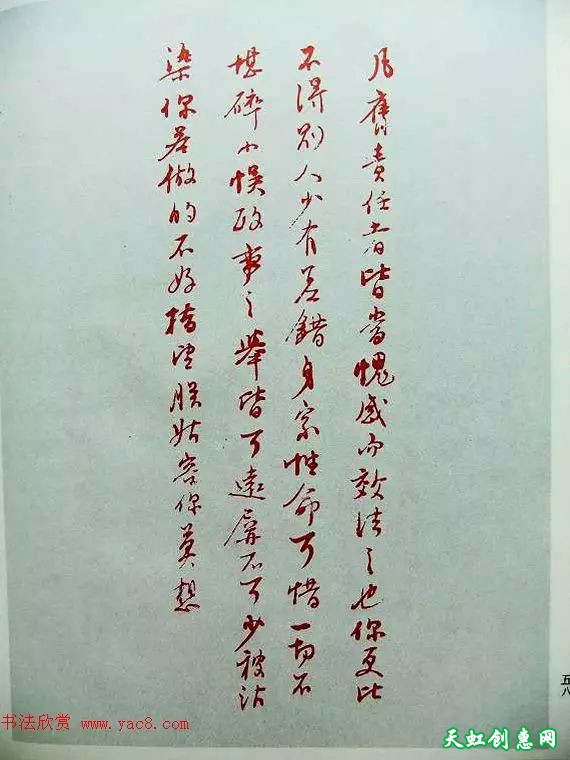 凡膺責任者皆當愧感而效法之也你更比
不得别人少有差錯身家性命可惜一切不
堪碎小悮政事之舉皆可遠屏不可少被沾
染你若做的不好指望朕姑容你莫想
五八
书法欣赏 www.yac8.com
天虹创惠网